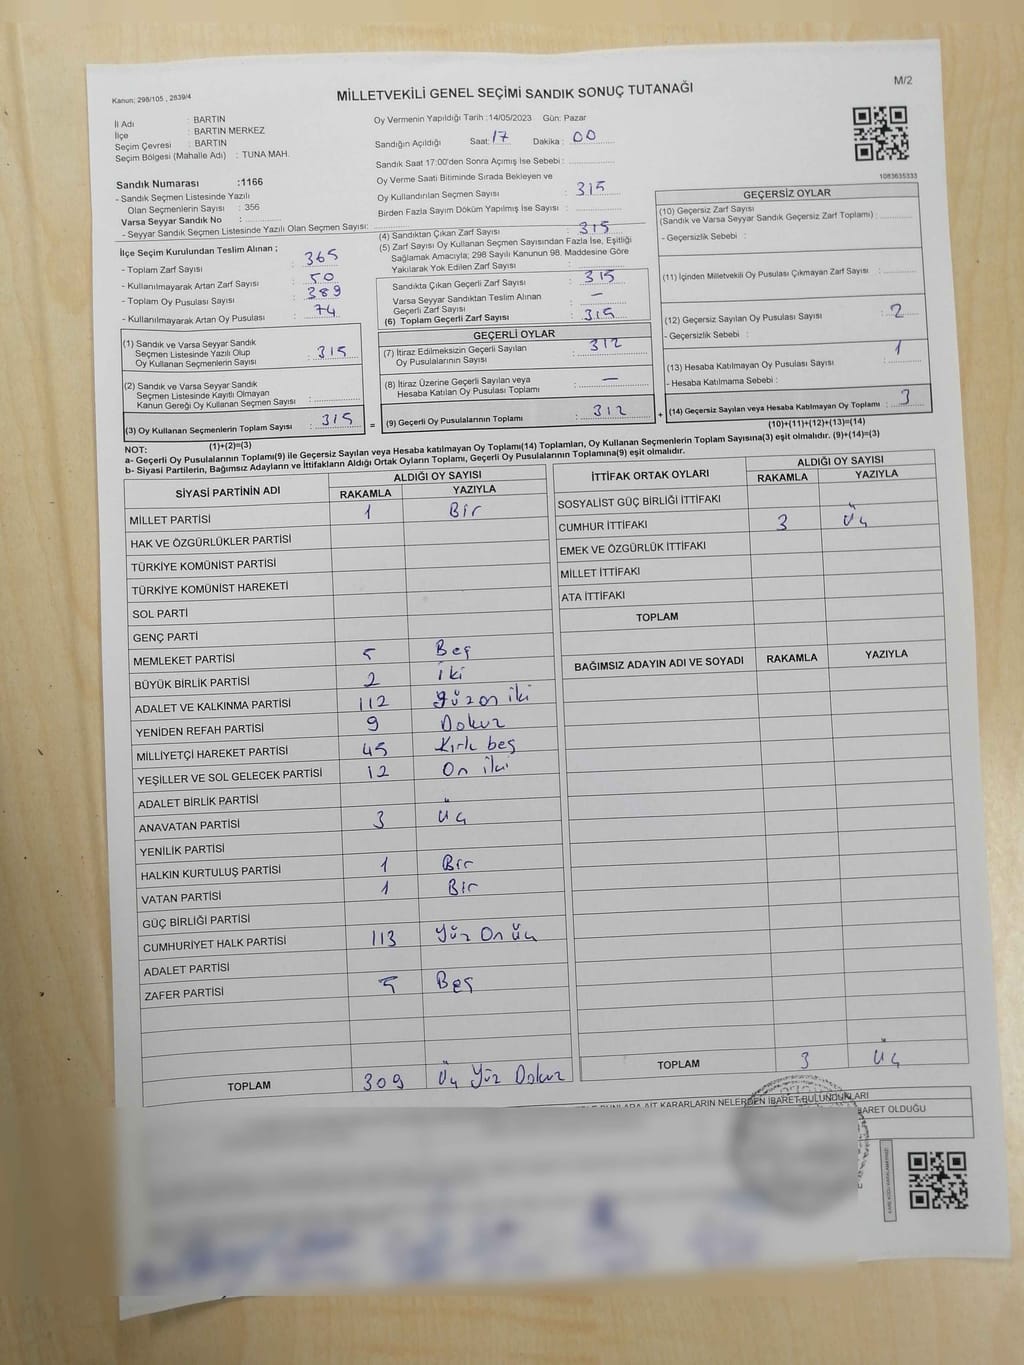 Kanun; 298/105 , 2839/4
MİLLETVEKİLİ GENEL SEÇİMİ SANDIK SONUÇ TUTANAĞI
M/2
İl Adı : BARTIN
İlçe : BARTIN MERKEZ
Seçim Çevresi : BARTIN
Seçim Bölgesi (Mahalle Adı) : TUNA MAH.
Sandık Numarası :1166
- Sandık Seçmen Listesinde Yazılı
Olan Seçmenlerin Sayısı : 356
Varsa Seyyar Sandık No :
- Seyyar Sandık Seçmen Listesinde Yazılı Olan Seçmen Sayısı:
Oy Vermenin Yapıldığı Tarih :14/05/2023 Gün: Pazar
Sandığın Açıldığı Saat: 17 Dakika : 00
Sandık Saat 17:00'den Sonra Açımış İse Sebebi :
Oy Verme Saati Bitiminde Sırada Bekleyen ve
Oy Kullandırılan Seçmen Sayısı : 315
Birden Fazla Sayım Döküm Yapılmış İse Sayısı :
1083635333
İlçe Seçim Kurulundan Teslim Alınan ;
- Toplam Zarf Sayısı : 365
- Kullanılmayarak Artan Zarf Sayısı : 50
- Toplam Oy Pusulası Sayısı : 389
- Kullanılmayarak Artan Oy Pusulası : 74
(1) Sandık ve Varsa Seyyar Sandık
Seçmen Listesinde Yazılı Olup
Oy Kullanan Seçmenlerin Sayısı : 315
(2) Sandık ve Varsa Seyyar Sandık
Seçmen Listesinde Kayıtlı Olmayan
Kanun Gereği Oy Kullanan Seçmen Sayısı :
(3) Oy Kullanan Seçmenlerin Toplam Sayısı : 315
(1)+(2)=(3)
(4) Sandıktan Çıkan Zarf Sayısı : 315
(5) Zarf Sayısı Oy Kullanan Seçmen Sayısından Fazla İse, Eşitliği
Sağlamak Amacıyla; 298 Sayılı Kanunun 98. Maddesine Göre
Yakılarak Yok Edilen Zarf Sayısı :
Sandıkta Çıkan Geçerli Zarf Sayısı : 315
Varsa Seyyar Sandıktan Teslim Alınan
Geçerli Zarf Sayısı : —
(6) Toplam Geçerli Zarf Sayısı : 315
GEÇERLİ OYLAR
(7) İtiraz Edilmeksizin Geçerli Sayılan
Oy Pusulalarının Sayısı : 312
(8) İtiraz Üzerine Geçerli Sayılan veya
Hesaba Katılan Oy Pusulası Toplamı : —
= (9) Geçerli Oy Pusulalarının Toplamı : 312 +
GEÇERSİZ OYLAR
(10) Geçersiz Zarf Sayısı
(Sandık ve Varsa Seyyar Sandık Geçersiz Zarf Toplamı) :
- Geçersizlik Sebebi :
(11) İçinden Milletvekili Oy Pusulası Çıkmayan Zarf Sayısı :
(12) Geçersiz Sayılan Oy Pusulası Sayısı : 2
- Geçersizlik Sebebi :
(13) Hesaba Katılmayan Oy Pusulası Sayısı : 1
- Hesaba Katılmama Sebebi :
(14) Geçersiz Sayılan veya Hesaba Katılmayan Oy Toplamı : 3
(10)+(11)+(12)+(13)=(14)
NOT:
a- Geçerli Oy Pusulalarının Toplamı(9) ile Geçersiz Sayılan veya Hesaba katılmayan Oy Toplamı(14) Toplamları, Oy Kullanan Seçmenlerin Toplam Sayısına(3) eşit olmalıdır. (9)+(14)=(3)
b- Siyasi Partilerin, Bağımsız Adayların ve İttifakların Aldığı Ortak Oyların Toplamı, Geçerli Oy Pusulalarının Toplamına(9) eşit olmalıdır.
SİYASİ PARTİNİN ADI ALDIĞI OY SAYISI
RAKAMLA YAZIYLA
MİLLET PARTİSİ 1 Bir
HAK VE ÖZGÜRLÜKLER PARTİSİ
TÜRKİYE KOMÜNİST PARTİSİ
TÜRKİYE KOMÜNİST HAREKETİ
SOL PARTİ
GENÇ PARTİ
MEMLEKET PARTİSİ 5 Beş
BÜYÜK BİRLİK PARTİSİ 2 iki
ADALET VE KALKINMA PARTİSİ 112 yüz on iki
YENİDEN REFAH PARTİSİ 9 Dokuz
MİLLİYETÇİ HAREKET PARTİSİ 45 Kırk beş
YEŞİLLER VE SOL GELECEK PARTİSİ 12 On iki
ADALET BİRLİK PARTİSİ
ANAVATAN PARTİSİ 3 Üç
YENİLİK PARTİSİ
HALKIN KURTULUŞ PARTİSİ 1 Bir
VATAN PARTİSİ 1 Bir
GÜÇ BİRLİĞİ PARTİSİ
CUMHURİYET HALK PARTİSİ 113 Yüz On üç
ADALET PARTİSİ
ZAFER PARTİSİ 5 Beş
TOPLAM 309 Üç Yüz Dokuz
İTTİFAK ORTAK OYLARI ALDIĞI OY SAYISI
RAKAMLA YAZIYLA
SOSYALİST GÜÇ BİRLİĞİ İTTİFAKI
CUMHUR İTTİFAKI 3 Üç
EMEK VE ÖZGÜRLÜK İTTİFAKI
MİLLET İTTİFAKI
ATA İTTİFAKI
TOPLAM
BAĞIMSIZ ADAYIN ADI VE SOYADI RAKAMLA YAZIYLA
TOPLAM 3 Üç
BUNLARA AİT KARARLARIN NELERDEN İBARET BULUNDUKLARI
BARET OLDUĞU